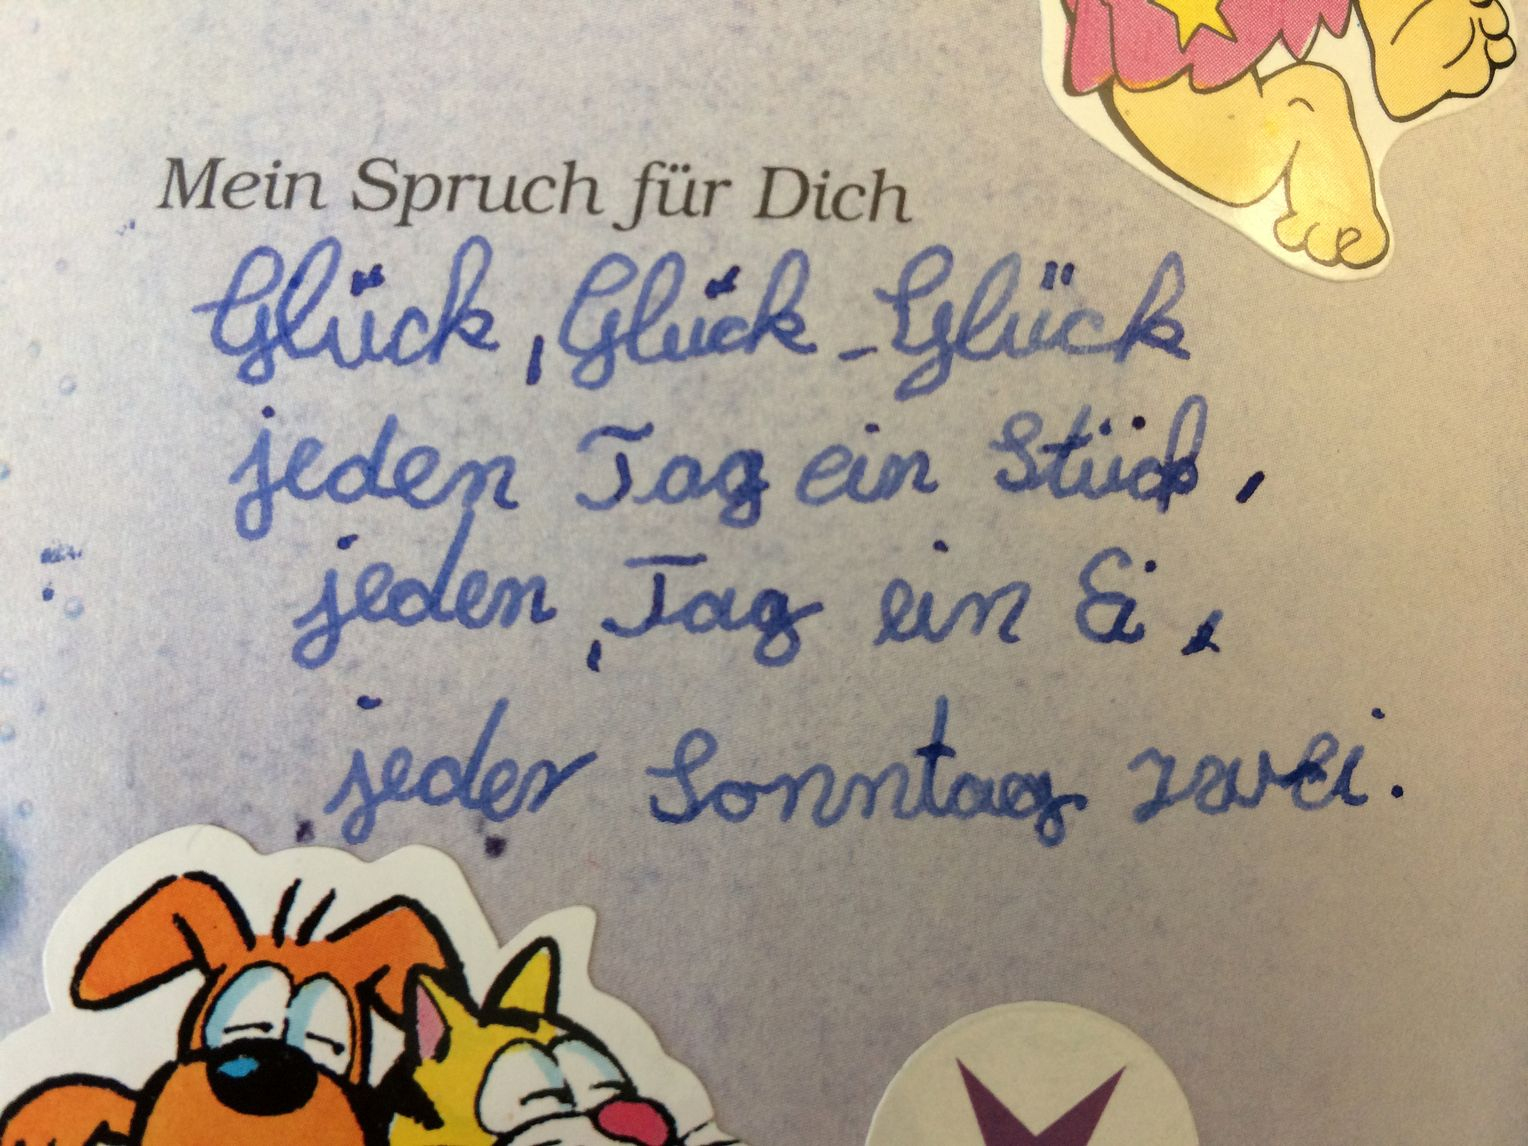 Mein Spruch für Dich
Glück, Glück - Glück
jeden Tag ein Stück,
jeden Tag ein Ei,
jeder Sonntag zwei.